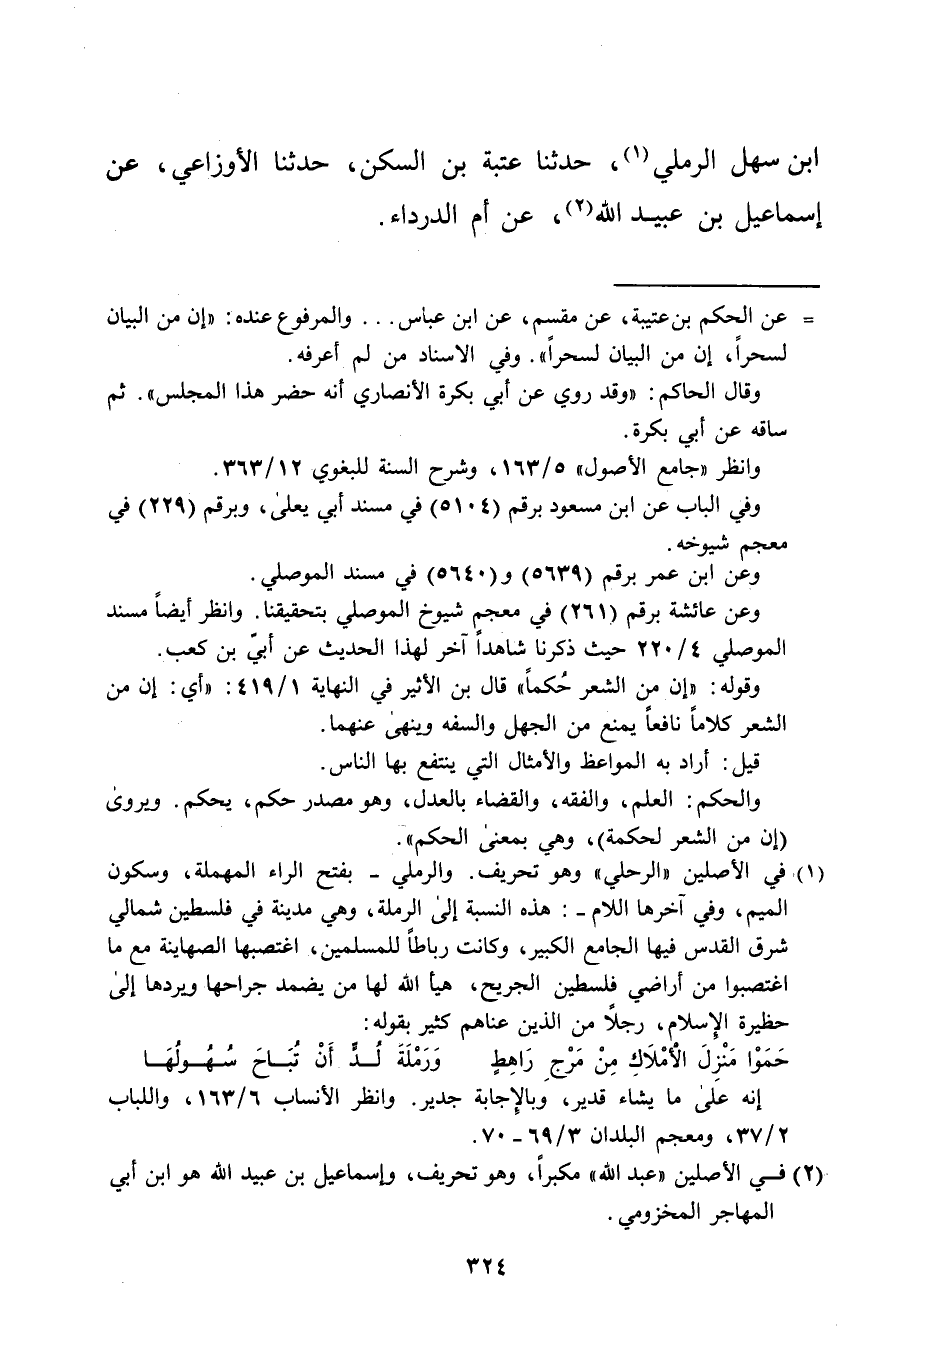 ابن سهل الرملي(١)، حدثنا عتبة بن السكن، حدثنا الأوزاعي، عن
إسماعيل بن عبيـد الله(٢)، عن أم الدرداء.
= عن الحكم بن عتيبة، عن مقسم، عن ابن عباس... والمرفوع عنده: «إن من البيان
لسحراً، إن من البيان لسحراً». وفي الاسناد من لم أعرفه.
وقال الحاكم: «وقد روي عن أبي بكرة الأنصاري أنه حضر هذا المجلس». ثم
ساقه عن أبي بكرة.
وانظر «جامع الأصول» ١٦٣/٥، وشرح السنة للبغوي ٣٦٣/١٢.
وفي الباب عن ابن مسعود برقم (٥١٠٤) في مسند أبي يعلىٰ، وبرقم (٢٢٩) في
معجم شيوخه.
وعن ابن عمر برقم (٥٦٣٩) و(٥٦٤٠) في مسند الموصلي.
وعن عائشة برقم (٢٦١) في معجم شيوخ الموصلي بتحقيقنا. وانظر أيضاً مسند
الموصلي ٢٢٠/٤ حيث ذكرنا شاهداً آخر لهذا الحديث عن أبيّ بن كعب.
وقوله: «إن من الشعر حُكماً» قال بن الأثير في النهاية ٤١٩/١: «أي: إن من
الشعر كلاماً نافعاً يمنع من الجهل والسفه وينهىٰ عنهما.
قيل: أراد به المواعظ والأمثال التي ينتفع بها الناس.
والحكم: العلم، والفقه، والقضاء بالعدل، وهو مصدر حكم، يحكم. ويروىٰ
(إن من الشعر لحكمة)، وهي بمعنىٰ الحكم».
(١) في الأصلين «الرحلي» وهو تحريف. والرملي - بفتح الراء المهملة، وسكون
الميم، وفي آخرها اللام -: هذه النسبة إلىٰ الرملة، وهي مدينة في فلسطين شمالي
شرق القدس فيها الجامع الكبير، وكانت رباطاً للمسلمين، اغتصبها الصهاينة مع ما
اغتصبوا من أراضي فلسطين الجريح، هيأ الله لها من يضمد جراحها ويردها إلىٰ
حظيرة الإسلام، رجلاً من الذين عناهم كثير بقوله:
حَمَوْا مَنْزِلَ الْأَمْلَاكِ مِنْ مَرْجِ رَاهِطٍ وَرَمْلَةَ لُـدٍّ أَنْ تُبَـاحَ سُـهُـولُهَـا
إنه علىٰ ما يشاء قدير، وبالإجابة جدير. وانظر الأنساب ١٦٣/٦، واللباب
٣٧/٢، ومعجم البلدان ٦٩/٣ - ٧٠.
(٢) فـي الأصلين «عبد الله» مكبراً، وهو تحريف، وإسماعيل بن عبيد الله هو ابن أبي
المهاجر المخزومي.
٣٢٤